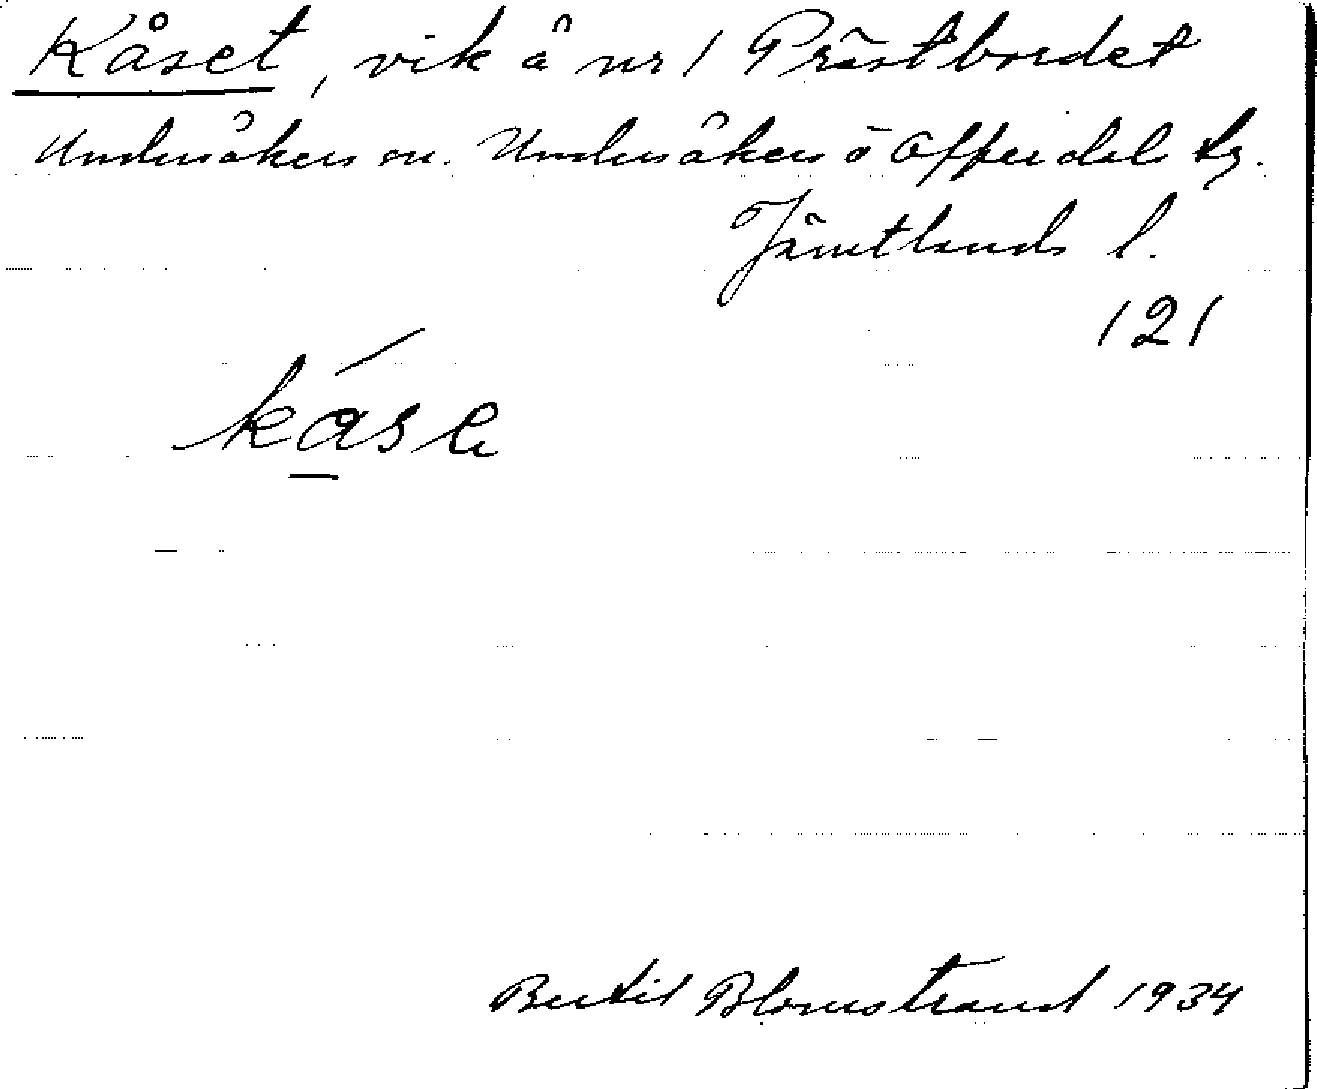 Kåset, vik å nr 1 Prästbordet
Undersåkers sn. Undersåkers o Offerdals tg.
Jämtlands l.
121
kåse
Bertil Blomstrand 1934